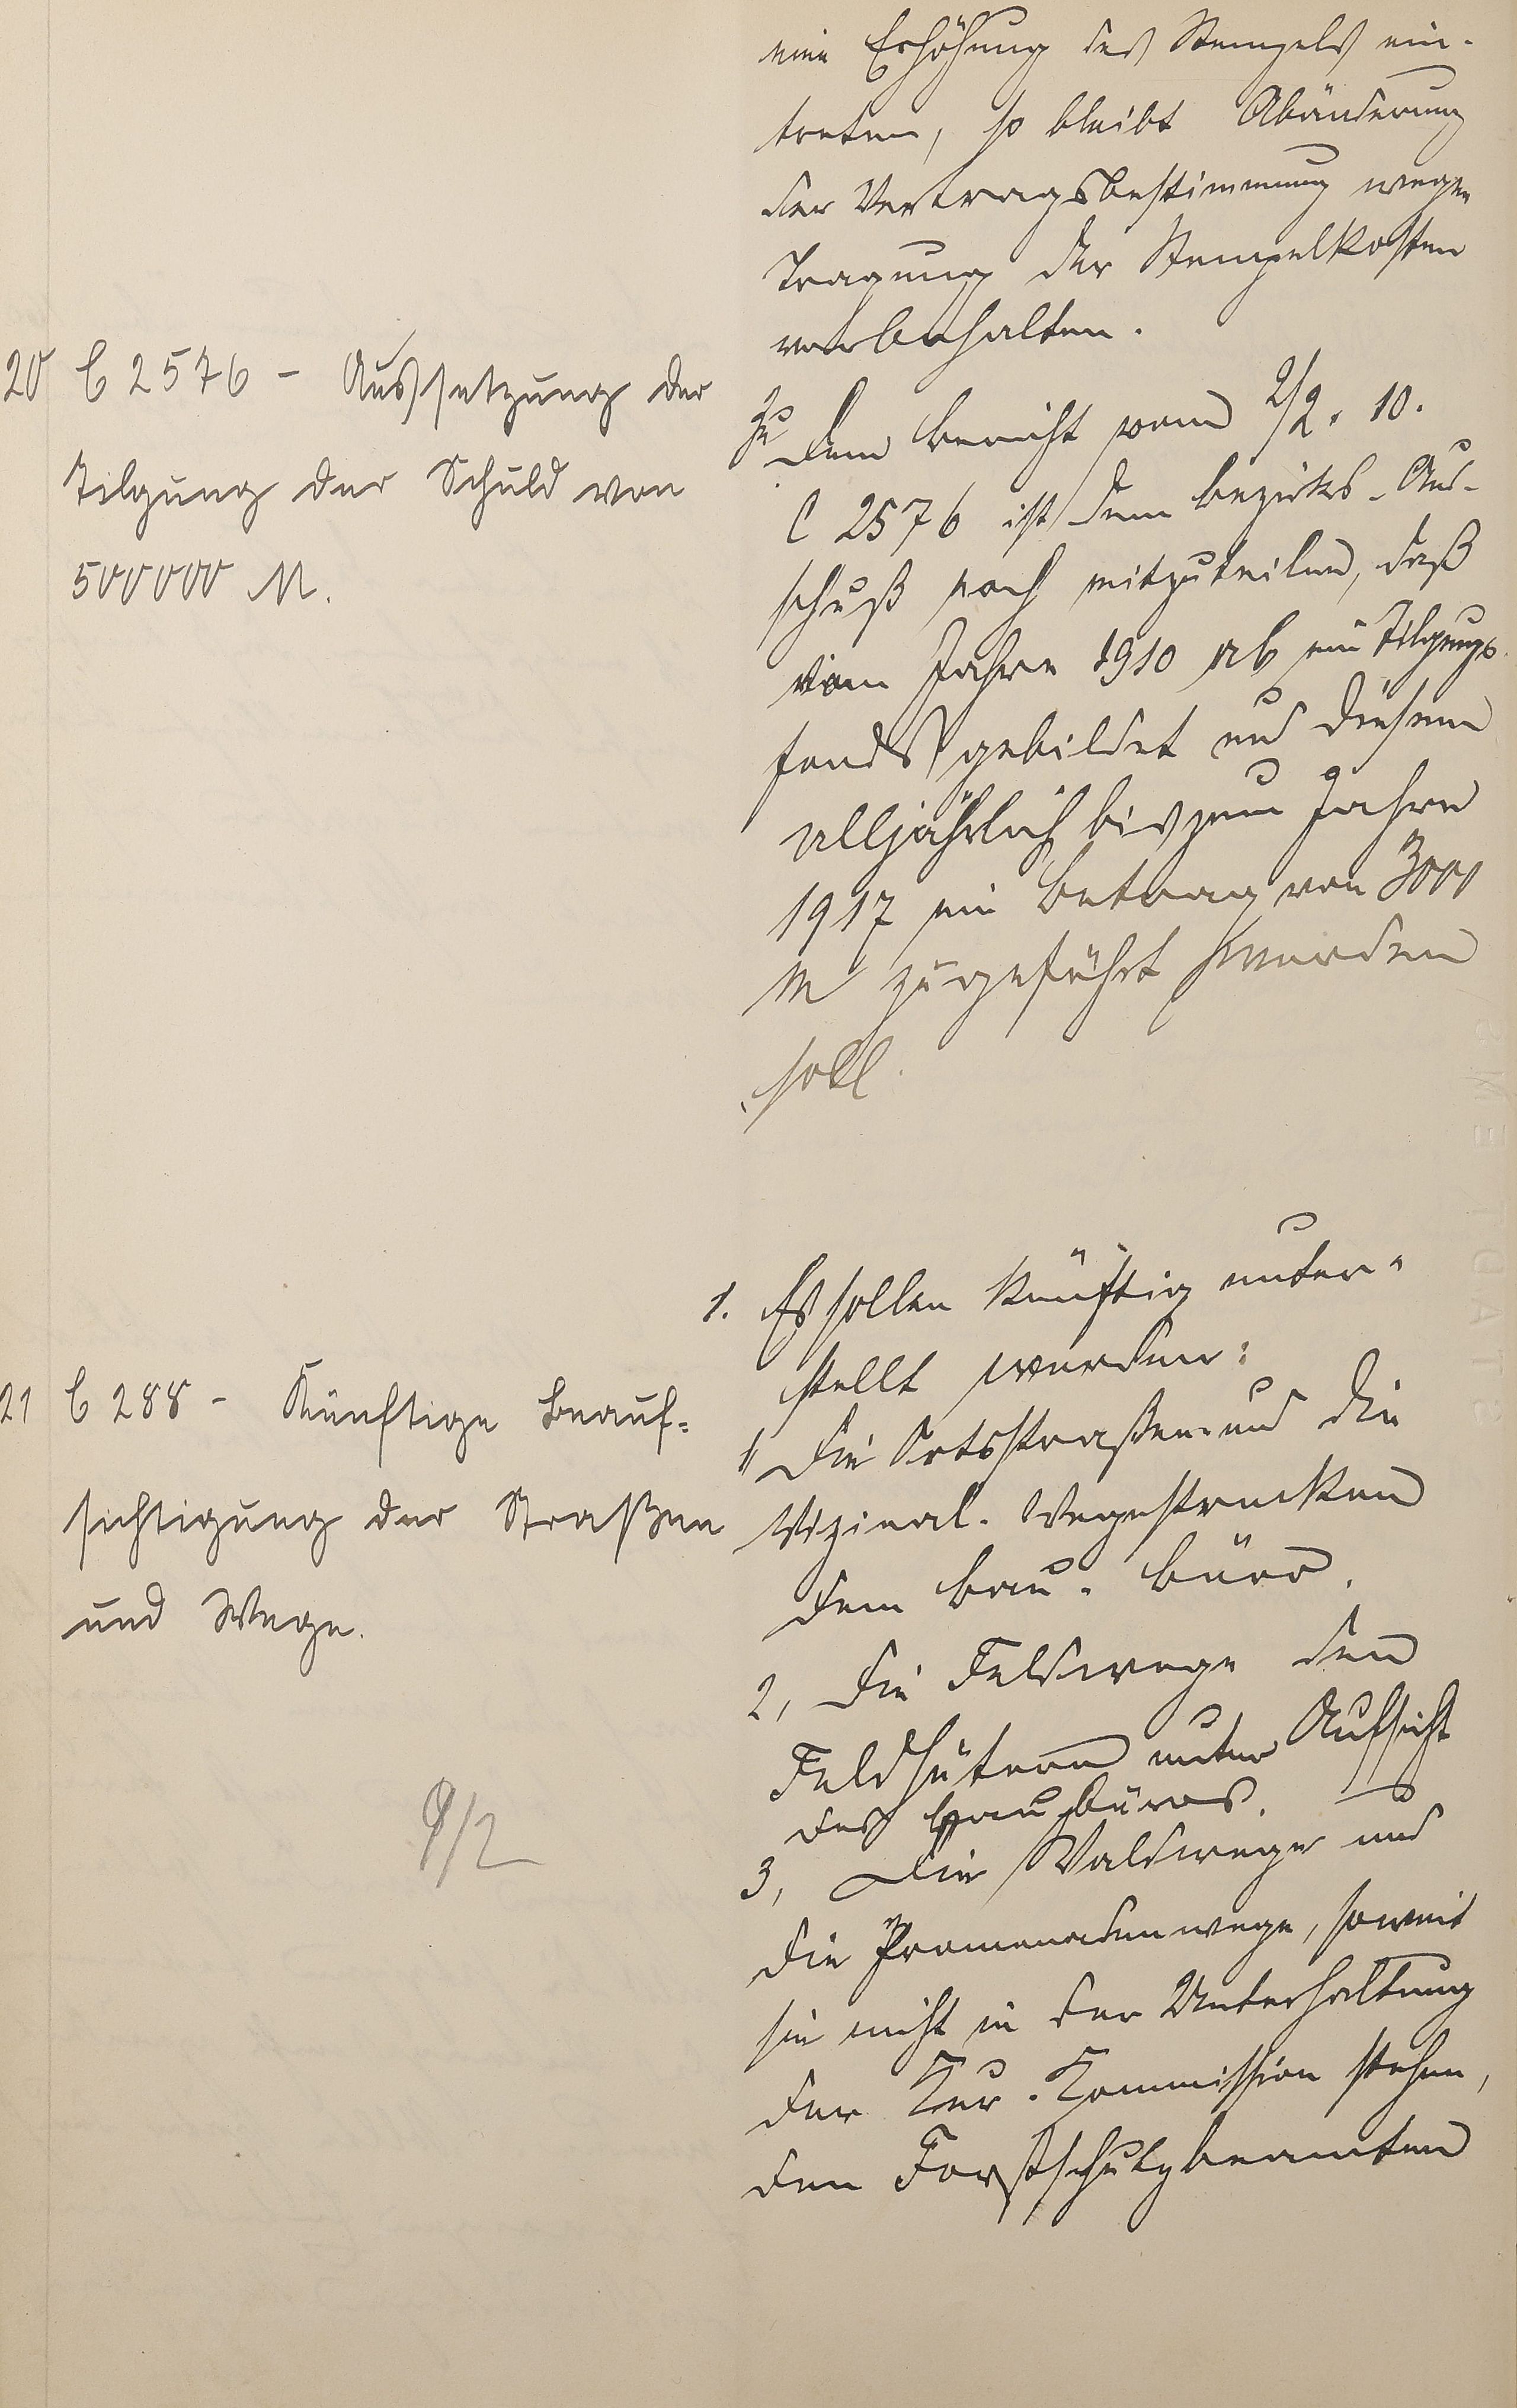 eine Erhöhung des Stempels ein-
treten, so bleibt Abänderung
der Vertragsbestimmung wegen
Tragung der Stempelkosten
vorbehalten.
20 C 2576 - Aussetzung der
Tilgung der Schuld von
500000 M.
Zu dem Bericht vom 2/2. 10.
C 2576 ist dem Bezirks-Aus-
schuß noch mitzuteilen, daß
vom Jahre 1910 ab ein Tilgungs-
fonds gebildet und diesem
alljährlich bis zum Jahre
1917 ein Betrag von 3000
M zugeführt werden
soll.
21 C 288 - Künftige Beauf-
sichtigung der Straßen
und Wege.
9/2
1. Es sollen künftig unter-
stellt werden:
1, die Ortsstraßen und die
Vizinal-Wegestrecken
dem Bau-Büro.
2, die Feldwege den
Feldhütern unter Aufsicht
des Baubüros.
3, die Waldwege und
die Promenadenwege, soweit
sie nicht in der Unterhaltung
der Kur-Kommission stehen,
den Forstschutzbeamten